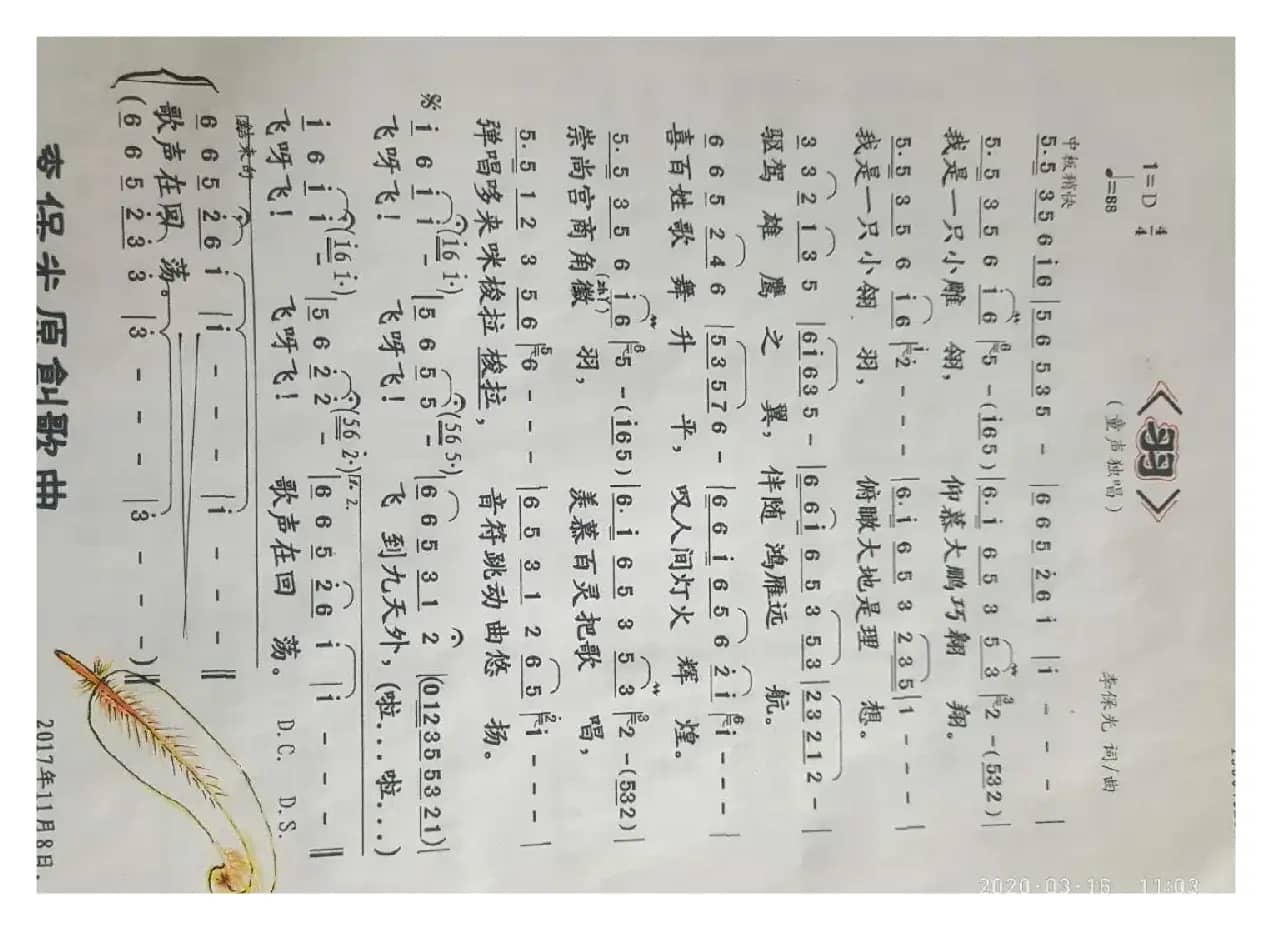 《羽》
(童声独唱)
1=D 4/4
中板稍快
♩=88
李保光 词/曲
5·5 3 5 6 i 6 | 5 6 5 3 5 - | 6 6 5 2 6 i | i - - - |
5·5 3 5 6 i 6 | 5 - (i 6 5) | 6·i 6 5 3 5 3 | 2 - (5 3 2) |
我是一只小雕 翎, 仰慕大鹏巧翱 翔。
5·5 3 5 6 i 6 | 2 - - - | 6·i 6 5 3 2 3 5 | 1 - - - |
我是一只小翎 羽, 俯瞰大地是理 想。
3 3 2 1 3 5 | 6 i 6 3 5 - | 6 6 i 6 5 3 5 3 | 2 3 2 1 2 - |
驱驾 雄 鹰 之 翼, 伴随 鸿雁远 航。
6 6 5 2 4 6 | 5 3 5 7 6 - | 6 6 i 6 5 6 2 i | i - - - |
喜百姓歌 舞 升 平, 叹人间灯火 辉 煌。
5·5 3 5 6 i 6 | 5 - (i 6 5) | 6·i 6 5 3 5 3 | 2 - (5 3 2) |
崇尚宫商角徵(zhǐ) 羽, 羡慕百灵把歌 唱,
5·5 1 2 3 5 6 | 6 - - - | 6 5 3 1 2 6 5 | i - - - |
弹唱哆来咪梭拉 梭拉, 音符跳动曲悠 扬。
% i 6 i i - (i 6 i·) | 5 6 5 5 - (5 6 5·) | 6 6 5 3 1 2 | (0 1 2 3 5 5 3 2 1) |
飞呀飞! 飞呀飞! 飞 到九天外, (啦...啦...)
i 6 i i - (i 6 i·) | 5 6 2 2 - (5 6 2·) | 1. 2. 6 6 5 2 6 i | i - - - ‖
飞呀飞! 飞呀飞! 歌声在回 荡。 D.C. D.S.
结束句
6 6 5 2 6 i | i - - - | i - - - ‖
歌声在回 荡。
(6 6 5 2 3 3 | 3 - - - | 3 - - -) ‖
李保光原創歌曲
2017年11月8日.
2020·03·16 11:03